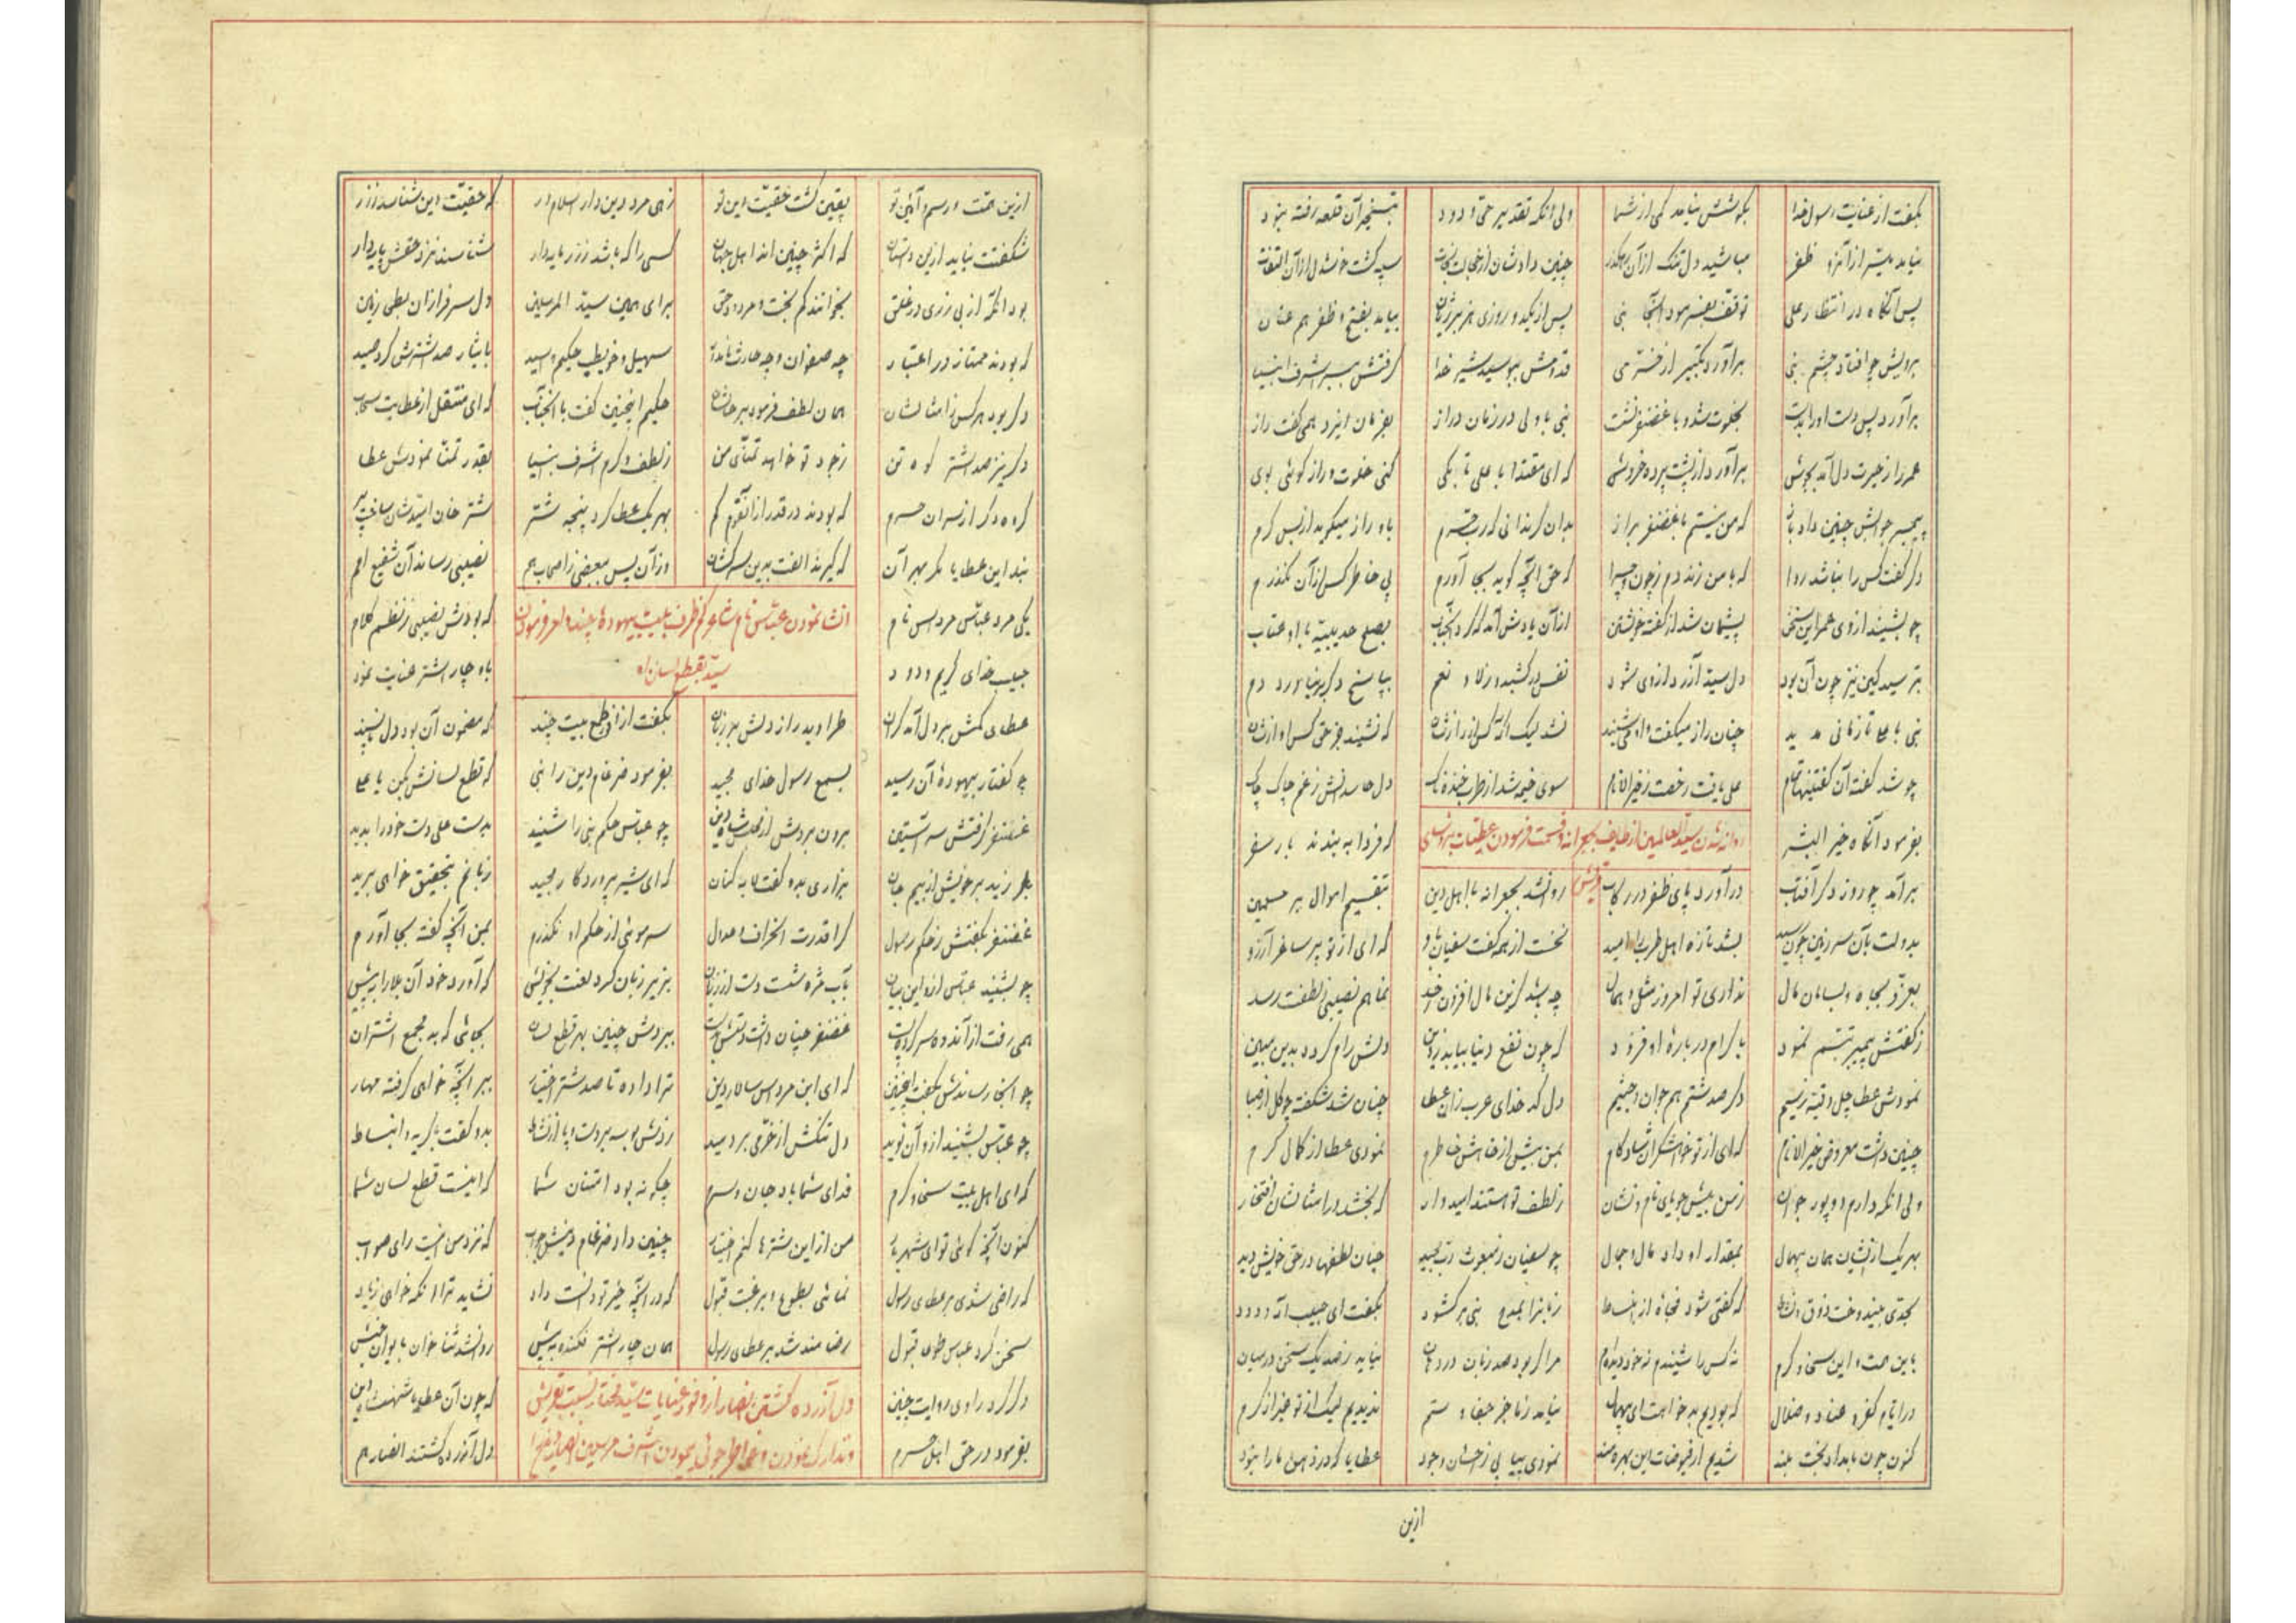 بگفت از عنایت رسول خدا بکوشش نیامد کمی از شما ولی آنکه تقدیر حق ودود بتسخیر آن قلعه رفته نبود
نیاید میسر از آنرو ظفر مباشید دل تنگ از آن رهگذر چنین دادشان از خجالت نجات سپه گشت خوشدل از آن التفات
پس آنگاه در انتظار علی توقف بفرمود آنجا نبی پس از یکدو روزی هزبر ژیان بیامد بفتح و ظفر هم عنان
برویش چو افتاد چشم نبی برآورد تکبیر از خرمی قدمش ببوسید شیر خدا گرفتش ببر اشرف انبیا
برآورد پس دست او را بدست بخلوت شد و با غضنفر نشست نبی با ولی در زمان دراز بفرمان ایزد همی گفت راز
عمر را ز حیرت دل آمد بجوش برآورد از پشت پرده خروش که ای مقتدا با علی تا بکی کنی خلوت و راز گوئی بوی
پیمبر جوابش چنین داد باز که من نیستم با غضنفر براز باو راز میگوید از بس کرم
دگر گفت کس را نباشد روا که با من زند دم ز چون و چرا که حق آنچه گوید بجا آورم پی خاطر کس از آن نگذرم
چو بشنید از وی عمر این سخن پشیمان شد از گفته خویشتن از آن یادش آمد که کرد آنجناب بصلح حدیبیه با او عتاب
بترسید کین نیز چون آن بود دل سید آزرده از وی شود نفس درکشید و ز لا و نعم بپاسخ دگر برنیاورد دم
نبی با علی تا زمانی مدید چنان راز میگفت و او می شنید که نشنید جز حق کس آواز شان
چو شد گفته آن گفتنیها تمام علی یافت رخصت ز خیر الانام سوی خیمه شد از طرب خنده ناک دل حاسدانش ز غم چاک چاک
بفرمود آنگاه خیر البشر که فردا به بندند بار سفر
روانه شدن سید العالمین از طایف بجعرانه و قسمت فرمودن عطیات بر رؤسای قریش
برآمد چو روز دگر آفتاب درآورد پای ظفر در رکاب روانشد بجعرانه با اهل دین بتقسیم اموال بر مسلمین
بدولت بآن سرزمین چون رسید بشد تازه اهل طرب را امید نخست از همه گفت سفیان باو که ای از تو پر ساغر آرزو
بعز و بجاه و بسامان و مال نداری تو امروز مثل و همال چه باشد کزین مال افزون ز حد بما هم نصیبی ز لطفت رسد
ز گفتش پیمبر تبسم نمود باکرام درباره او فزود که چون نفع دنیا بیابد زدین دلش رام گردد بدین مبین
نمودش عطا چل وقیه ز سیم دگر صد شتر هم جوان و جسیم دل کدخدای عرب زان عطا چنان شد شکفته چو گل از صبا
چنین داشت معروض خیر الانام که ای از تو خواهشگران شادکام بمن بیش از خواهش خاطرم نمودی عطا از کمال کرم
ولی آنکه دارم دو پور جوان ز من بیش جویای نام و نشان ز لطف تو هستند امیدوار که بخشد در امثالشان افتخار
بهر یک از ایشان همان بیهمال بمقدار او داد مال و جمال چو سفیان ز مبعوث رب مجید چنان لطفها در حق خویش دید
بجدی بیندوخت ذوق و نشاط که گفتی شود فجأه از انبساط زبان را بمدح نبی برگشود بگفت ای حبیب اله ودود
باین همت و این سخا و کرم نه کس را شنیدم نه خود دیده ام مرا گر بود صد زبان در دهان نیاید ز صد یک سخن در میان
در ایام کفر و عناد و ضلال که بودیم بدخواهت ای بیهمال نیامد ز ما جز جفا و ستم ندیدیم لیک از تو غیر از کرم
کنون چون بامداد بخت بلند شدیم از فیوضات این بهره مند نمودی بما پی ز احسان وجود عطایا که در ذهن ما را نبود
ازین
ازین همت و رسم و آئین تو یقین گشت حقیت دین تو زهی مرد دین دار اسلام ور که حقیت دین شناسد ز زر
شگفتت نیاید ازین داستان که اکثر چنین اند اهل جهان کسی را که باشد ز زر مایه دار شناسند نزد حقش پایه دار
بود آنکه از بی زری در خلق بخوانند کم بخت و مردود حق برای همین سید المرسلین دل سرفرازان بطحی زمین
که بودند ممتاز در اعتبار چه صفوان و چه حارث نامدار سهیل و حویطب حکیم و اسید بایثار صد اشترش کرد صید
دگر بود هر کس ز امثالشان همان لطف فرمود بر حالشان حکیم اینچنین گفت با آنجناب که ای منفعل از عطایت سحاب
دگر نیز صد اشتر کوه تن ز جود تو خواهد تمنای من ز لطف و کرم اشرف انبیا بقدر تمنا نمودش عطا
گروه دگر از سران حرم که بودند در قدر از آنقوم کم بهر یک عطا کرد پنجه شتر شتر خان امیدشان ساخت پر
نبد این عطایا مگر بهر آن که گیرند الفت بدین سرکشان وز آن پس ببعضی ز اصحاب هم نصیبی رساند آن شفیع امم
یکی مرد عباس مرداس نام که بودش نصیبی ز نظم کلام
انشا نمودن عباس نام شاعر کم ظرف بیت بیهوده چند و امر فرمودن سید بقطع لسان او
حبیب خدای کریم ودود باو چار اشتر عنایت نمود
عطای کمش بر دل آمد گران طراوید راز دلش بر زبان بگفت از ره طبع بیت چند که مضمون آن بود دل ناپسند
چو گفتار بیهوده آن رسید بسمع رسول خدای مجید بفرمود ضرغام دین را نبی که قطع لسانش بکن یا علی
غضنفر گرفتش سر آستین برون بردش از محفل شاه دین چو عباس حکم نبی را شنید بدست علی دست خود را بدید
بلرزید بر خویش از بیم جان بزاری بدو گفت لابه کنان که ای شیر پروردگار مجید زبانم بتحقیق خواهی برید
غضنفر بگفتش ز حکم رسول کرا قدرت انحراف و عدول سر موئی از حکم او نگذرم بمن آنچه گفته بجا آورم
چو بشنید عباس از او این بیان بآب مژه شست دست از زبان بزیر زبان کرد لعنت بخویش که آورد خود آن بلا را به پیش
همی رفت از آندوه سر کرده پست غضنفر چنان داشت دستش بدست ببردش چنین بهر قطع لسان بجائی که بد مجمع اشتران
چو آنجا رساندش بگفت اینچنین که ای ابن مرداس سالار دین ترا داده تا صد شتر اختیار ببر آنچه خواهی گرفته مهار
چو عباس بشنید از او آن نوید دل تنگش از خرمی بردمید زدش بوسه بر دست و پا از نشاط بدو گفت با گریه و انبساط
که ای اهل بیت سخا و کرم فدای شما باد جان و سرم چگونه بود امتنان شما که اینست قطع لسان شما
کنون آنچه گوئی تو ای شهریار من از این شترها کنم اختیار چنین داد ضرغام دینش جواب که نزد من اینست رای صواب
که راضی شوی بر عطای رسول نمائی بطوع و برغبت قبول که در آنچه خیر تو دانست داد نشاید ترا آنکه خواهی زیاد
سخن کرد عباس طوعا قبول رضامند شد بر عطای رسول همان چار اشتر فکنده به پیش روانشد ثنا خوان بایوان خویش
دگر کرد راوی روایت چنین که چون آن عطایا شهنشاه دین
دل آزرده گشتن انصار از وفور عنایات سید مختار نسبت بقریش و تدارک نمودن و خاطر جوئی نمودن اشرف مرسلین
بفرمود در حق اهل حرم دل آزرده گشتند انصار هم